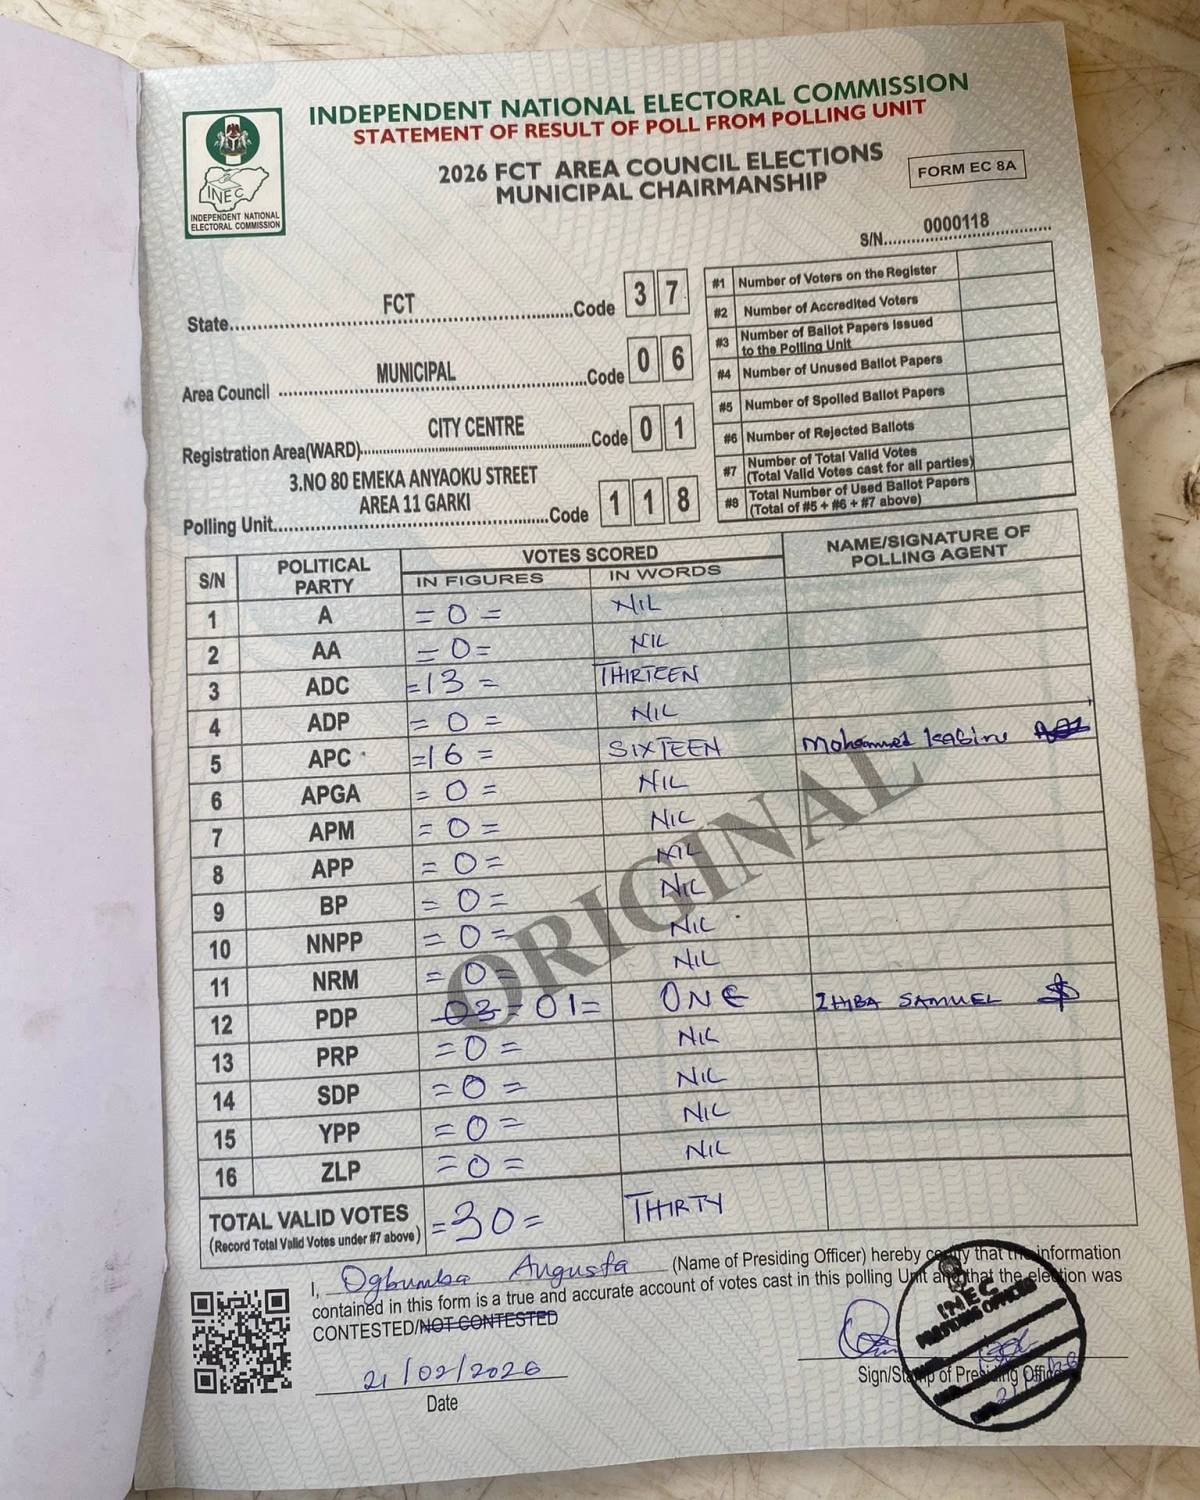 INDEPENDENT NATIONAL ELECTORAL COMMISSION
STATEMENT OF RESULT OF POLL FROM POLLING UNIT
2026 FCT AREA COUNCIL ELECTIONS
MUNICIPAL CHAIRMANSHIP
FORM EC 8A
INEC
INDEPENDENT NATIONAL
ELECTORAL COMMISSION
S/N 0000118
State FCT Code 3 7
Area Council MUNICIPAL Code 0 6
Registration Area(WARD) CITY CENTRE Code 0 1
3.NO 80 EMEKA ANYAOKU STREET
AREA 11 GARKI
Polling Unit Code 1 1 8
#1 Number of Voters on the Register
#2 Number of Accredited Voters
#3 Number of Ballot Papers Issued
to the Polling Unit
#4 Number of Unused Ballot Papers
#5 Number of Spoiled Ballot Papers
#6 Number of Rejected Ballots
#7 Number of Total Valid Votes
(Total Valid Votes cast for all parties)
#8 Total Number of Used Ballot Papers
(Total of #5 + #6 + #7 above)
S/N POLITICAL PARTY VOTES SCORED NAME/SIGNATURE OF POLLING AGENT
IN FIGURES IN WORDS
1 A =0= NIL
2 AA =0= NIL
3 ADC =13= THIRTEEN
4 ADP =0= NIL
5 APC =16= SIXTEEN Mohammed Kabiru
6 APGA =0= NIL
7 APM =0= NIL
8 APP =0= NIL
9 BP =0= NIL
10 NNPP =0= NIL
11 NRM =0= NIL
12 PDP 03 =01= ONE ZHIBA SAMUEL
13 PRP =0= NIL
14 SDP =0= NIL
15 YPP =0= NIL
16 ZLP =0= NIL
ORIGINAL
TOTAL VALID VOTES =30= THIRTY
(Record Total Valid Votes under #7 above)
I, Ogbumba Augusta (Name of Presiding Officer) hereby certify that the information
contained in this form is a true and accurate account of votes cast in this polling Unit and that the election was
CONTESTED/NOT CONTESTED
21/02/2026
Date
Sign/Stamp of Presiding Officer
INEC
PRESIDING OFFICER